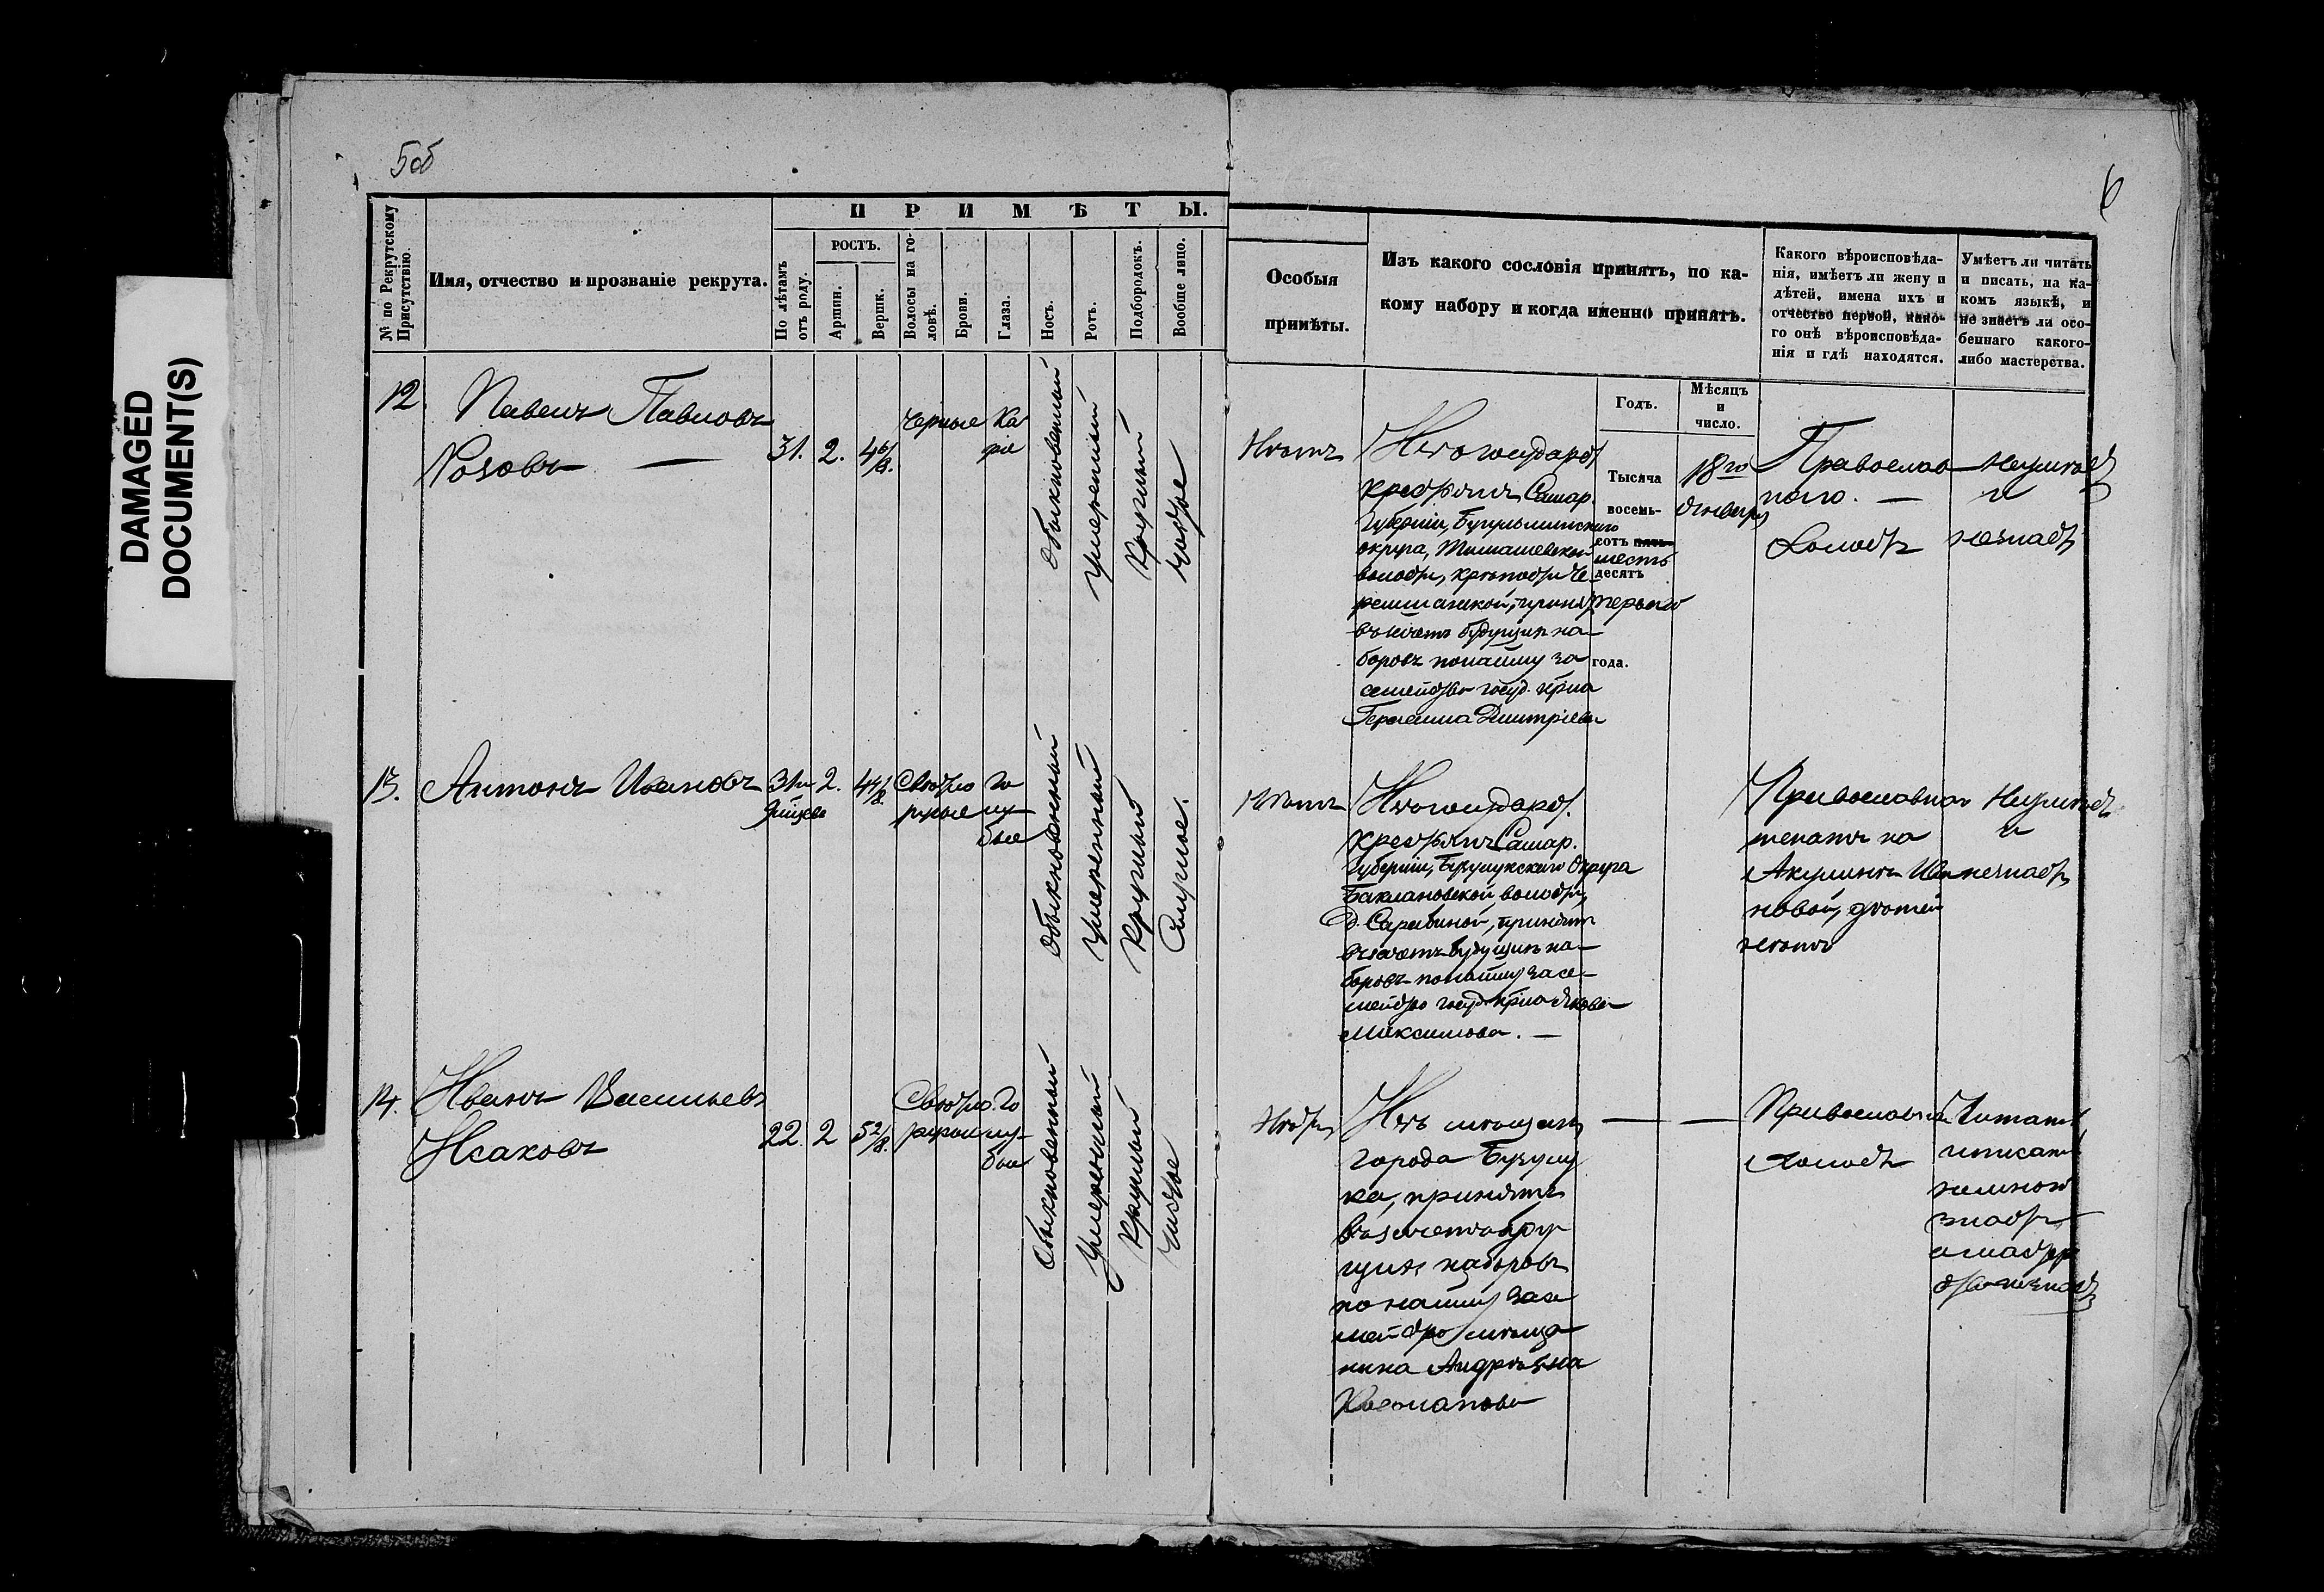 DAMAGED
DOCUMENT(S)
5об
6
№ по Рекрутскому Присутствію.
Имя, отчество и прозваніе рекрута.
ПРИМѢТЫ.
По лѣтамъ отъ роду.
РОСТЪ.
Аршин.
Вершк.
Волосы на головѣ.
Брови.
Глаза.
Носъ.
Ротъ.
Подбородокъ.
Вообще лицо.
Особыя
примѣты.
Изъ какого сословія принятъ, по ка-
кому набору и когда именно принятъ.
Годъ.
Мѣсяцъ
и
число.
Какого вѣроисповѣда-
нія, имѣетъ ли жену и
дѣтей, имена ихъ и
отчество первой, како-
го онѣ вѣроисповѣда-
нія и гдѣ находятся.
Умѣетъ ли читать
и писать, на ка-
комъ языкѣ, и
не знаетъ ли осо-
беннаго какого-
либо мастерства.
12.
Павелъ Павловъ
31. 2. 4 6/8.
черные
ка
ріе
Обыкновенный
Умеренный
Круглый
чистое
Нѣтъ
Изъ государст
крестьянъ Самар.
Губерніи, Бугульминскаго
округа,
волости, крѣпости Че
ремшанской, принятъ
въ зачетъ будущихъ на
боровъ по найму за
семейство госуд. кр-на
Дмитріева
Тысяча
восемь-
сотъ пять
шесть
десятъ
перваго
года.
18го
Января
Православ
наго. —
Холостъ
Неумѣетъ
и
незнаетъ
13.
Антонъ Ивановъ
31 2. 4 4/8.
Зайцевъ
Свѣтло
русые
го
лу
бые
Обыкновенный
Умеренный
Круглый
Смуглое.
Нѣтъ
Изъ государст.
крестьянъ Самар.
Губерніи, Бузулукскаго Округа
Баклановской волости,
д. принятъ
въ зачетъ будущихъ на-
боровъ по найму за се-
мейство госуд. кр-на Якова
Максимова. —
Православнаго
женатъ на
Акулинѣ Ива
новой, дѣтей
нетъ
Неумѣетъ
и
незнаетъ
14.
Иванъ Васильевъ
Исаковъ
22. 2 5 2/8.
Свѣтло
русые
го
лу-
бые
Обыкновенный
Умеренный
Круглый
чистое
Нѣтъ
Изъ мѣщанъ
города Бузулу
ка, принятъ
въ зачетъ буду
щихъ наборовъ
по найму за се
мейство мѣща
нина Андреяна
— —
Православнаго
холостъ
Читать
и писать
знаетъ
а мастер
ства незнаетъ